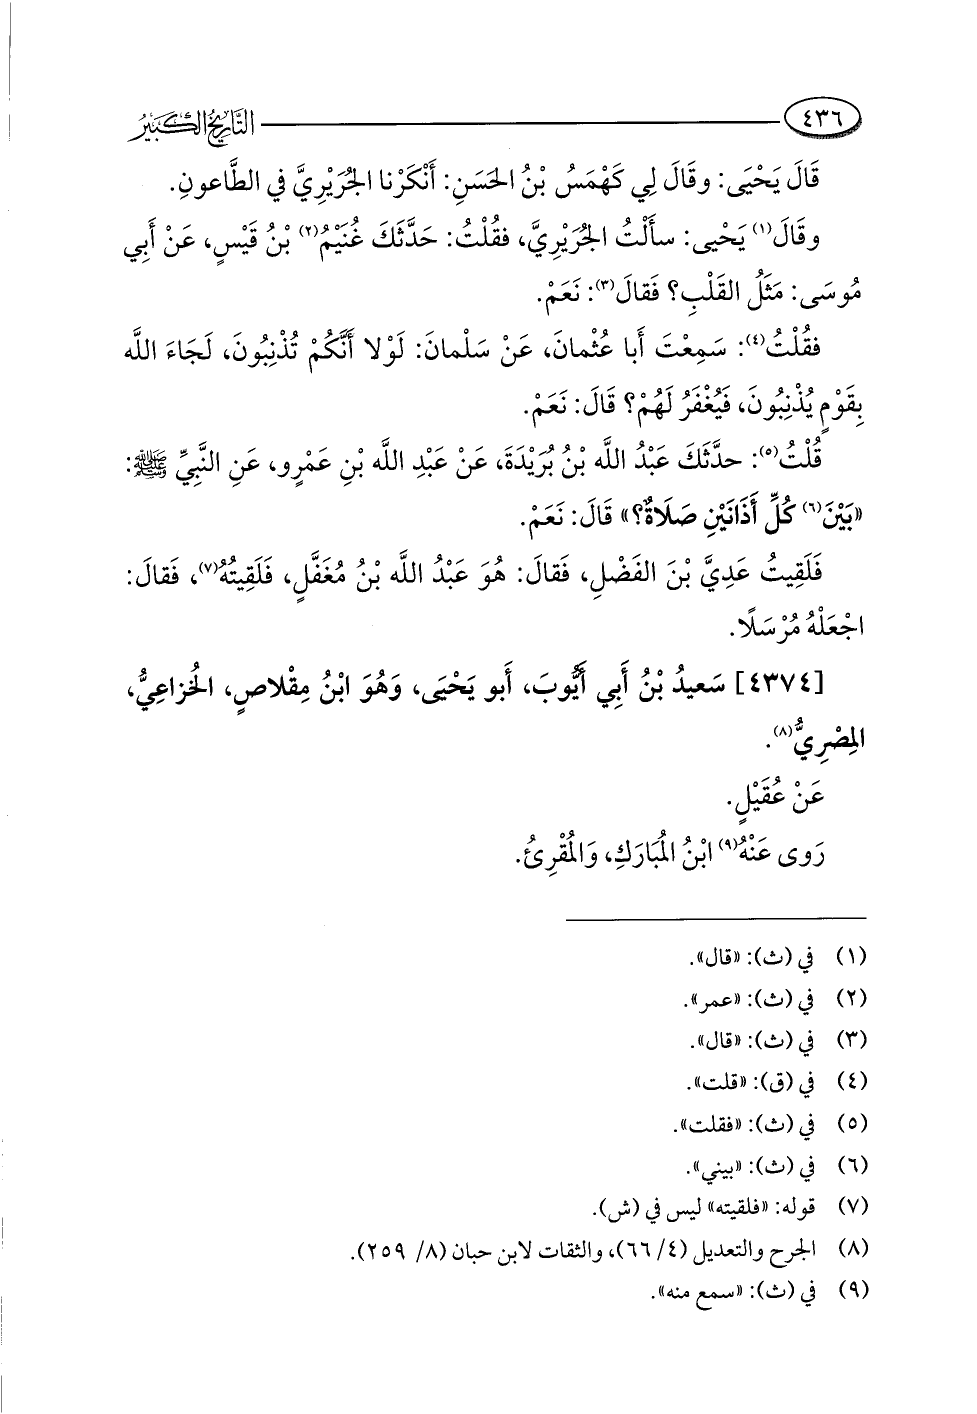 ٤٣٦
التاريخ الكبير
قَالَ يَحْيَى: وقَالَ لِي كَهْمَسُ بْنُ الحَسَنِ: أَنْكَرْنا الجُرَيْرِيَّ في الطَّاعونِ.
وقَالَ(١) يَحْيى: سأَلْتُ الجُرَيْرِيَّ، فقُلْتُ: حَدَّثَكَ غُنَيْمُ(٢) بْنُ قَيْسٍ، عَنْ أَبي
مُوسَى: مَثَلُ القَلْبِ؟ فَقالَ(٣): نَعَمْ.
فقُلْتُ(٤): سَمِعْتَ أَبا عُثْمانَ، عَنْ سَلْمانَ: لَوْلا أَنَّكُمْ تُذْنِبُونَ، لَجَاءَ اللَّه
بِقَوْمٍ يُذْنِبُونَ، فَيُغْفَرُ لَهُمْ؟ قَالَ: نَعَمْ.
قُلْتُ(٥): حدَّثَكَ عَبْدُ اللَّه بْنُ بُرَيْدَةَ، عَنْ عَبْدِ اللَّه بْنِ عَمْرٍو، عَنِ النَّبِيِّ ﷺ:
«بَيْنَ(٦) كُلِّ أَذَانَيْنِ صَلَاةٌ؟» قَالَ: نَعَمْ.
فَلَقِيتُ عَدِيَّ بْنَ الفَضْلِ، فَقالَ: هُوَ عَبْدُ اللَّه بْنُ مُغَفَّلٍ، فَلَقِيتُهُ(٧)، فَقالَ:
اجْعَلْهُ مُرْسَلًا.
[٤٣٧٤] سَعيدُ بْنُ أَبِي أَيُّوبَ، أَبو يَحْيَى، وَهُوَ ابْنُ مِقْلاصٍ، الخُزاعِيُّ،
المِصْرِيُّ(٨).
عَنْ عُقَيْلٍ.
رَوى عَنْهُ(٩) ابْنُ المُبَارَكِ، وَالمُقْرِئُ.
(١) في (ث): «قال».
(٢) في (ث): «عمر».
(٣) في (ث): «قال».
(٤) في (ق): «قلت».
(٥) في (ث): «فقلت».
(٦) في (ث): «بيني».
(٧) قوله: «فلقيته» ليس في (ش).
(٨) الجرح والتعديل (٤/ ٦٦)، والثقات لابن حبان (٨/ ٢٥٩).
(٩) في (ث): «سمع منه».